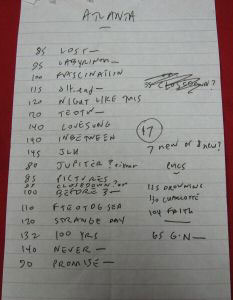 ATLANTA
85 LOST —
95 LABYRINTH —
100 FASCINATION
115 alt end —
120 NIGHT LIKE THIS
120 TEOTW —
140 LOVESONG
140 INBETWEEN
145 JLH
80 JUPITER ? either
85 PICTURES
CLOSEDOWN ? or
100 BEFORE 3 —
110 FTEOTDGSEA
120 STRANGE DAY
132 100 YRS
140 NEVER —
90 PROMISE —
CLOSEDOWN ?
17
7 new or 8 new?
115 DROWNING
110 CHARLOTTE
104 FAITH
65 G.N —